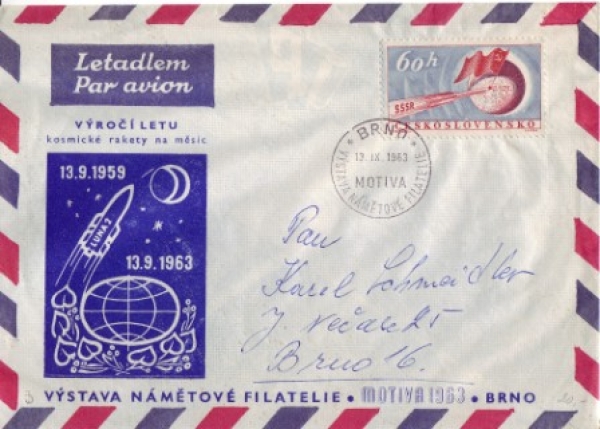 Letadlem
Par avion
VÝROČÍ LETU
kosmické rakety na měsíc
13.9.1959
LUNA 2
13.9.1963
60h
SSSR
ČESKOSLOVENSKO
BRNO
13. IX. 1963
MOTIVA
VÝSTAVA NÁMĚTOVÉ FILATELIE
Pan
Karel Schmeidler
Brno 16.
VÝSTAVA NÁMĚTOVÉ FILATELIE • MOTIVA 1963 • BRNO